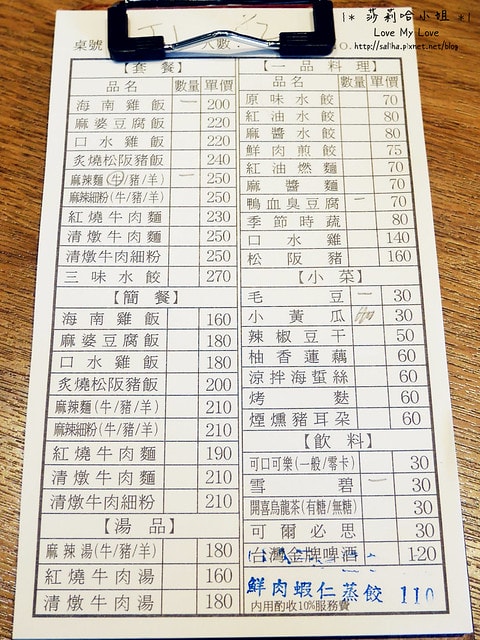 |* 莎莉哈小姐 *|
Love My Love
http://saliha.pixnet.net/blog
桌號 人數：
【套餐】
品名 數量 單價
海南雞飯 一 200
麻婆豆腐飯 220
口水雞飯 220
炙燒松阪豬飯 240
麻辣麵(牛/豬/羊) 一 250
麻辣細粉(牛/豬/羊) 250
紅燒牛肉麵 230
清燉牛肉麵 250
清燉牛肉細粉 250
三味水餃 270
【簡餐】
海南雞飯 160
麻婆豆腐飯 180
口水雞飯 180
炙燒松阪豬飯 200
麻辣麵(牛/豬/羊) 210
麻辣細粉(牛/豬/羊) 210
紅燒牛肉麵 190
清燉牛肉麵 210
清燉牛肉細粉 210
【湯品】
麻辣湯(牛/豬/羊) 180
紅燒牛肉湯 160
清燉牛肉湯 180
【一品料理】
品名 數量 單價
原味水餃 70
紅油水餃 80
麻醬水餃 80
鮮肉煎餃 75
紅油燃麵 70
麻醬麵 70
鴨血臭豆腐 一 70
季節時蔬 80
口水雞 140
松阪豬 160
【小菜】
毛豆 一 30
小黃瓜 30
辣椒豆干 50
柚香蓮藕 60
涼拌海蜇絲 60
烤麩 60
煙燻豬耳朵 60
【飲料】
可口可樂(一般/零卡) 30
雪碧 一 30
開喜烏龍茶(有糖/無糖) 30
可爾必思 30
台灣金牌啤酒 120
鮮肉蝦仁蒸餃 110
內用酌收10%服務費